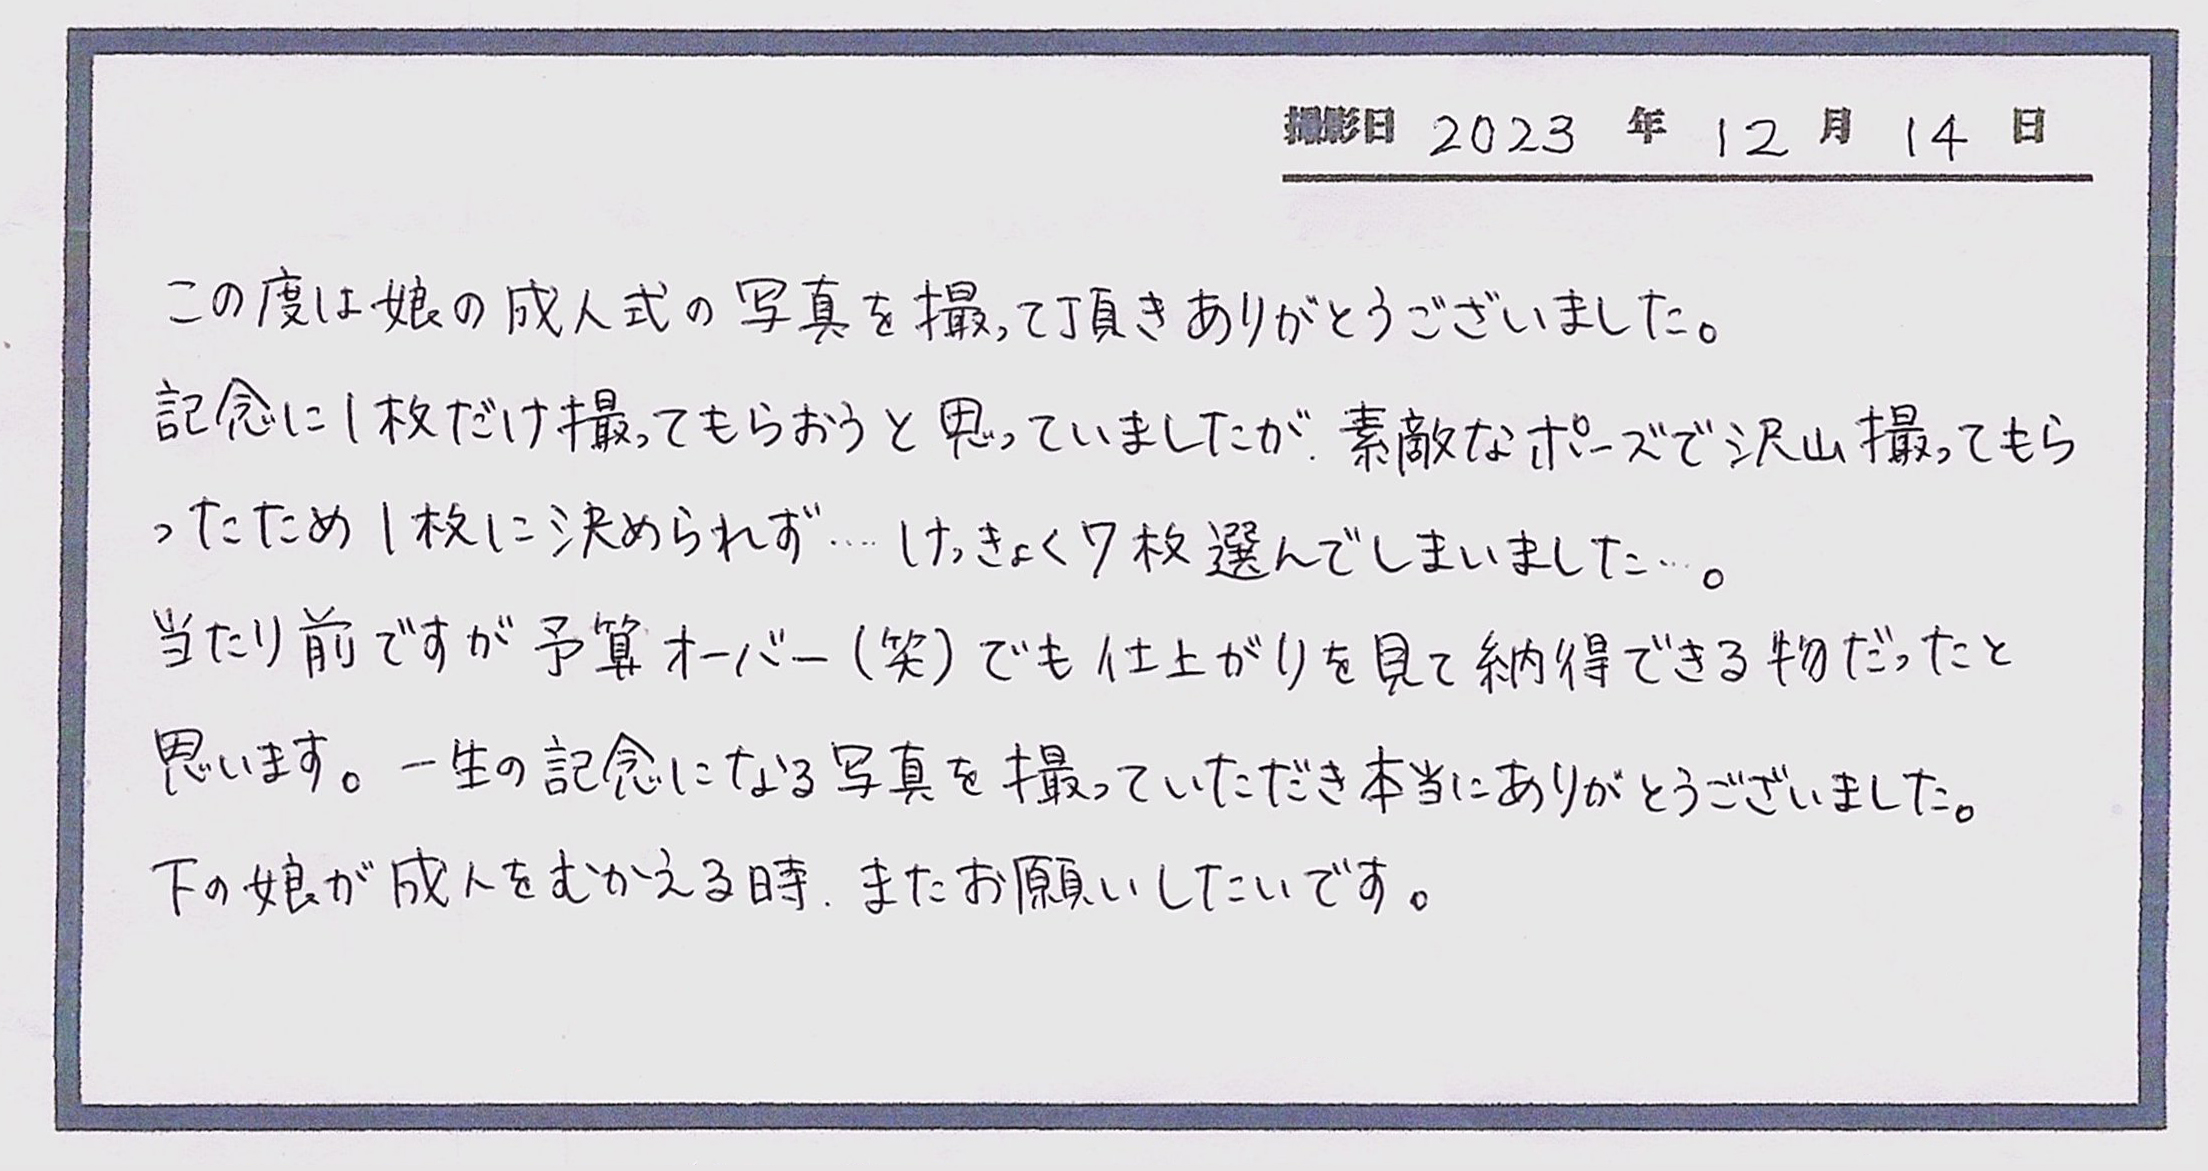 撮影日 2023 年 12 月 14 日
この度は娘の成人式の写真を撮って頂きありがとうございました。
記念に1枚だけ撮ってもらおうと思っていましたが、素敵なポーズで沢山撮ってもら
ったため1枚に決められず…けっきょく7枚選んでしまいました…。
当たり前ですが予算オーバー(笑)でも仕上がりを見て納得できる物だったと
思います。一生の記念になる写真を撮っていただき本当にありがとうございました。
下の娘が成人をむかえる時、またお願いしたいです。